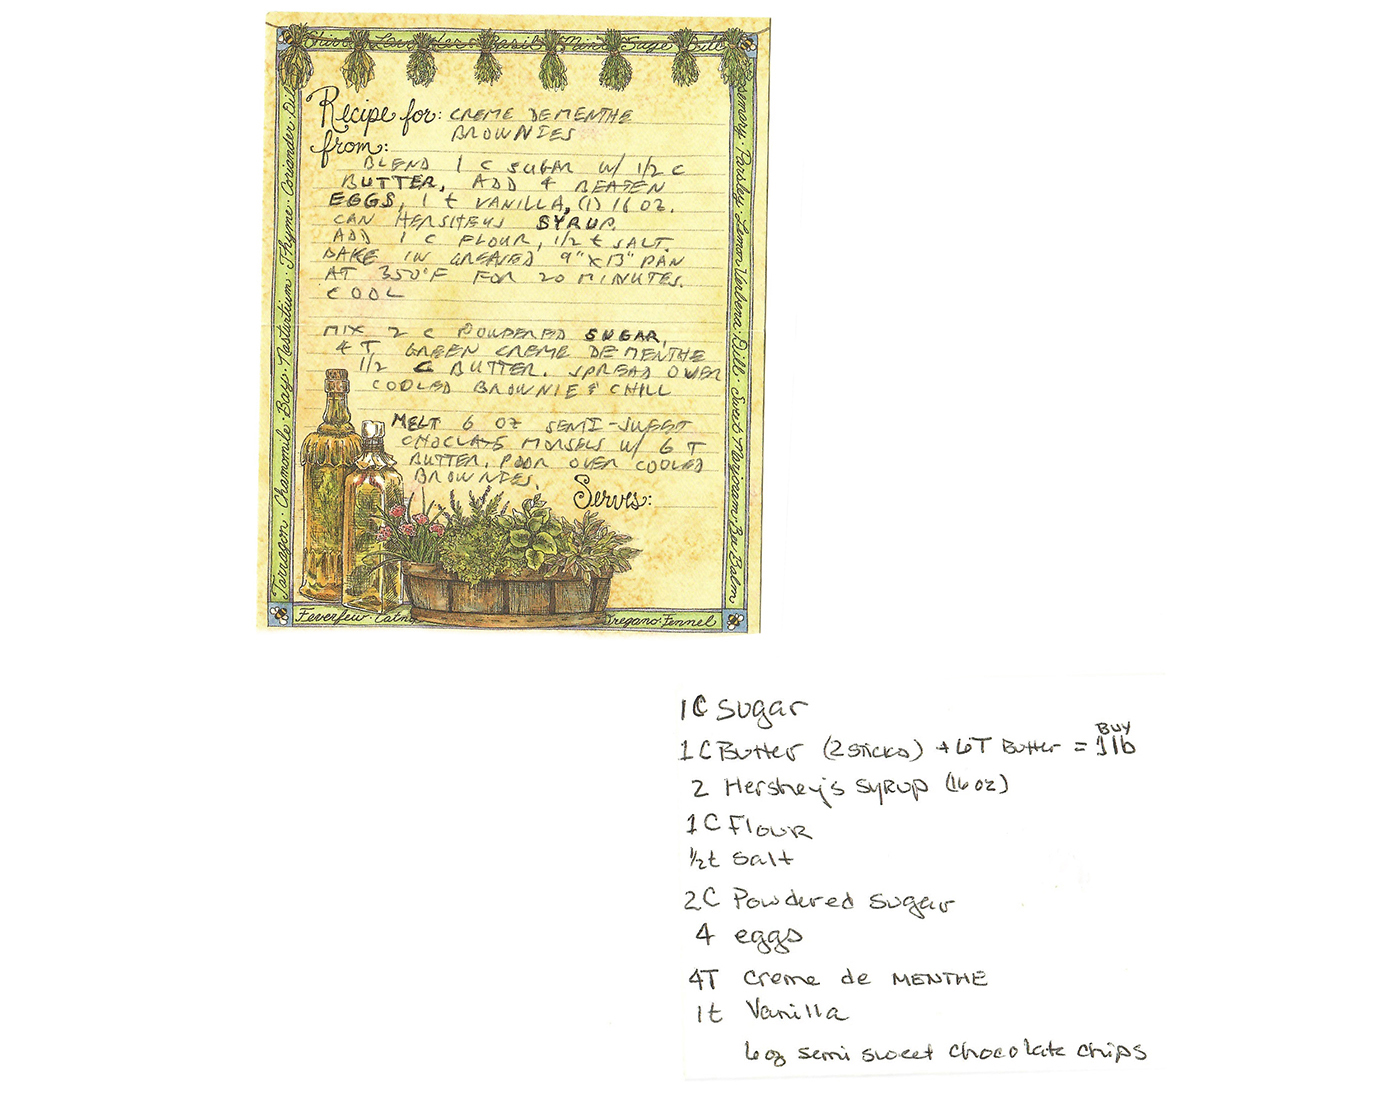 Chives · Lavender · Basil · Mint · Sage · Dill
Recipe for: CREME DEMENTHE
BROWNIES
from:
BLEND 1 C SUGAR W/ 1/2 C
BUTTER, ADD 4 BEATEN
EGGS, 1 t VANILLA, (1) 16 OZ.
CAN HERSHEYS SYRUP.
ADD 1 C FLOUR, 1/2 t SALT.
BAKE IN GREASED 9" X 13" PAN
AT 350°F FOR 20 MINUTES.
COOL
MIX 2 C POWDERED SUGAR,
4 T, GREEN CREME DE MENTHE
1/2 C BUTTER. SPREAD OVER
COOLED BROWNIE & CHILL
MELT 6 OZ SEMI-SWEET
CHOCLATE MORSELS W/ 6 T
BUTTER. POOR OVER COOLED
BROWNIES.
Serves:
Tarragon · Chamomile · Bay · Nasturtium · Thyme · Coriander · Dill
Rosemary · Parsley · Lemon Verbena · Dill · Sweet Marjoram · Bee Balm
Feverfew · Catnip
Oregano · Fennel
1C Sugar
BUY
1C Butter (2 sticks) + 6T Butter = 1 lb
2 Hershey's Syrup (16 oz)
1C Flour
1/2 t Salt
2C Powdered Sugar
4 eggs
4T Creme de MENTHE
1t Vanilla
6 oz semi sweet chocolate chips